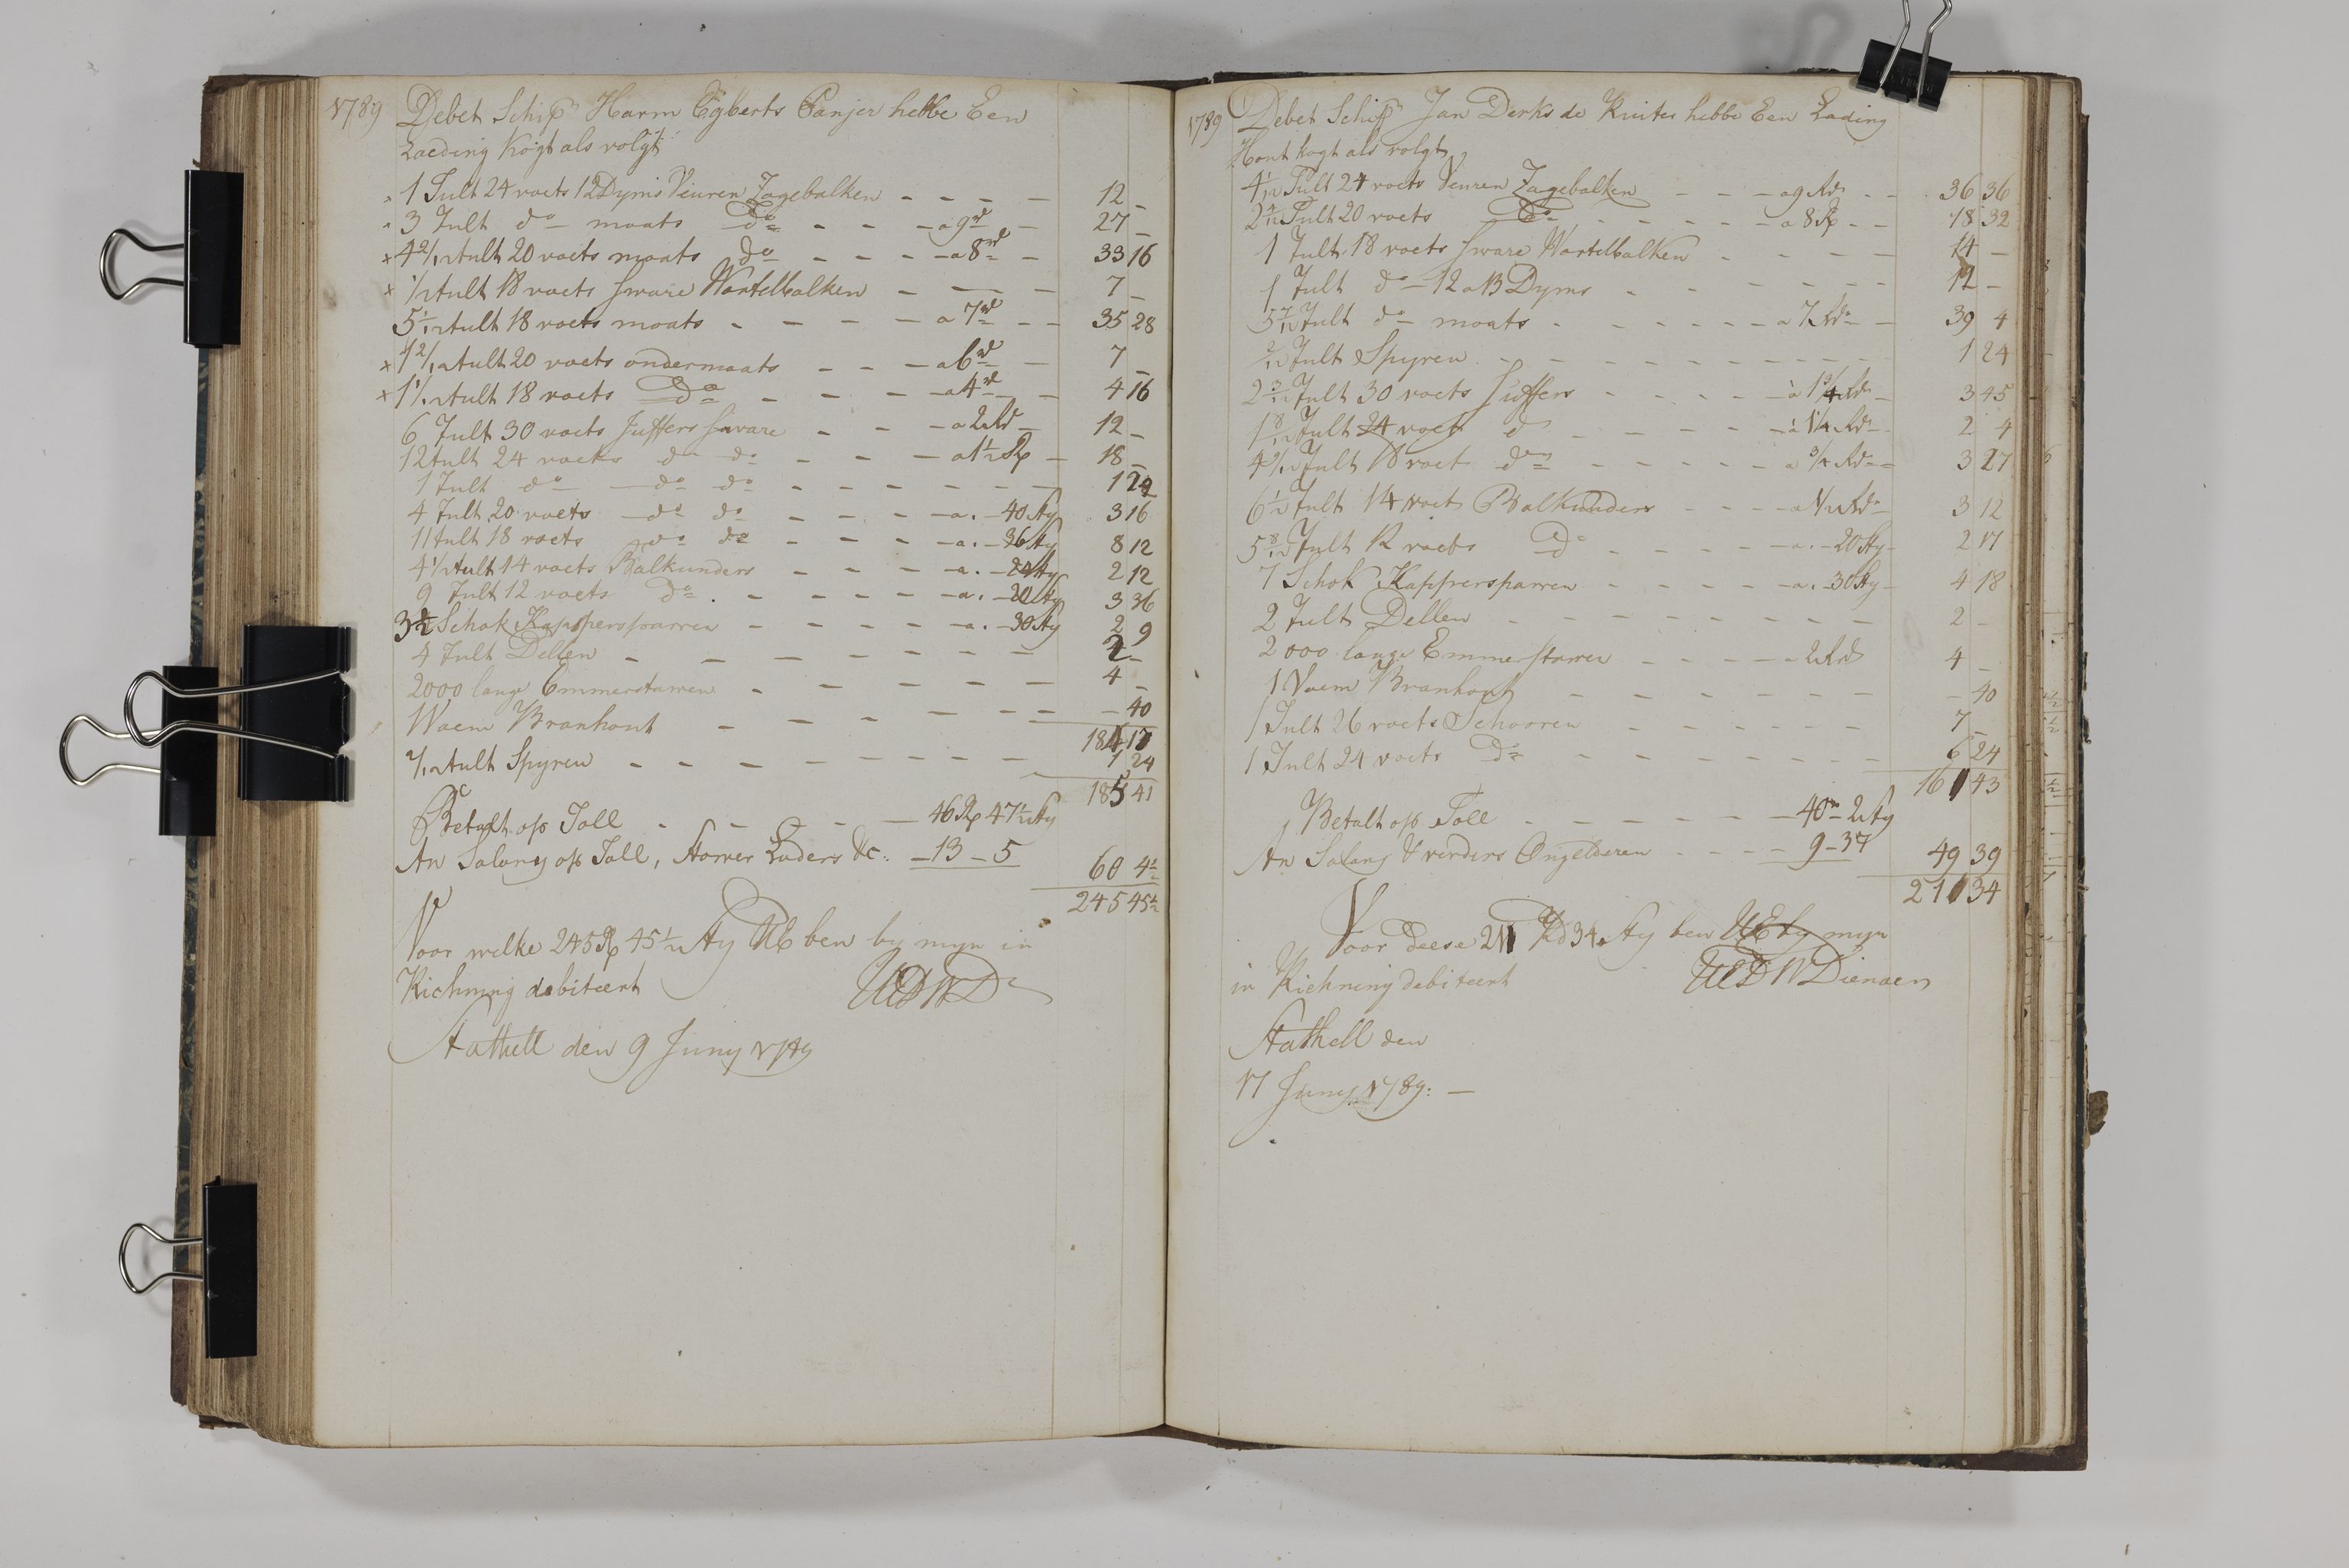 1789 Debet Schip Harm Egberts Panjer hebbe Een
Laeding kogt als volgt
1 Tult 24 voets 12 Dyms Veuren Zagebalken - - - - 12 -
3 Tult do moats do - - - a 9 rd - 27 -
× 4 2/12 tult 20 voets moats do - - - - a 8 rd - 33 16
× 1/2 tult 18 voets sware Wortelbalken - - - 7 -
5 1/12 tult 18 voets moats - - - - a 7 rd - - 35 28
× 1 2/12 tult 20 voets ondermaats - - - a 6 rd - 7 -
× 1 1/12 tult 18 voets Do - - - - a 4 rd - - 4 16
6 Tult 30 voets Juffers sware - - - a 2 Rd - 12 -
12 tult 24 voets do do - - - a 1 1/2 R - 18 -
1 Tult do do do - - - - - - - 1 24
4 Tult 20 voets do do - - - - a . - 40 sty 3 16
11 tult 18 voets do do - - - - a . - 36 sty 8 12
4 1/2 tult 14 voets Balkunders - - - - a . - 24 sty 2 12
9 Tult 12 voets do . - - - - a . - 20 sty 3 36
3 1/2 Schok Kappersparren - - - - - a . - 30 sty 2 9
4 Tult Dellen - - - - - - - 2 -
2000 lange Emmerstarren - - - - - - 4 -
Waem Branhout - - - - - - - 40
184 17
2/12 tult Spyren - - - - - - - - 1 24
185 41
Betalt op Toll - - - - - 46 R 47 1/2 sty
An Salary op Toll, Stower Laders &c: - 13 - 5 60 4 1/2
245 45 1/2
Voor welke 245 R 45 1/2 sty UE ben by myn in
Richning debiteert UEDWD
Stathell den 9 Juny 1789
1789 Debet Schip Jan Derks de Ruiter hebbe Een Lading
Hout kogt als volgt
4 1/12 Tult 24 voets Veuren Zagebalken - - - a 9 Rd - - 36 36
2 4/12 Tult 20 voets Do - - - - - a 8 R - - 18 32
1 Tult 18 voets sware Wortelbalken - - - - 14 -
1 Tult do - 12 a 13 Dyms - - - - - - 12 -
5 7/12 Tult do moats - - - - - a 7 Rd - 39 4
2/12 Tult Spyren - - - - - - - - - 1 24
2 3/12 Tult 30 voets Juffers - - - - a 1 3/4 Rd - 3 45
1 8/12 Tult 24 voets d - - - - - a 1 1/4 Rd - 2 4
4 9/12 Tult 18 voet do - - - - - a 3/4 Rd - 3 27
6 1/2 Tult 14 voets Balkunders - - - - a 1/2 Rd - 3 12
5 8/12 Tult 12 voets do - - - - - a . - 20 sty - 2 17
7 Schok Kappersparren - - - - - a . - 30 sty - 4 18
2 Tult Dellen - - - - - - - - - 2 -
2000 lange Emmerstarren - - - - a 2 Rd 4 -
1 Vaem Branhout - - - - - - - 40
1 Tult 26 voets Schooren - - - - - - 7 -
1 Tult 24 voets Do - - - - - - - 6 24
161 43
Betalt op Toll - - - - - - 40 - 2 sty
An Salary & verders Ongelderen - - - - 9 - 37 49 39
211 34
Voor deese 211 Rd 34 sty ben UE by myn
in Richning debiteert UEDWDienaer
Stathell den
17 Juny 1789: -